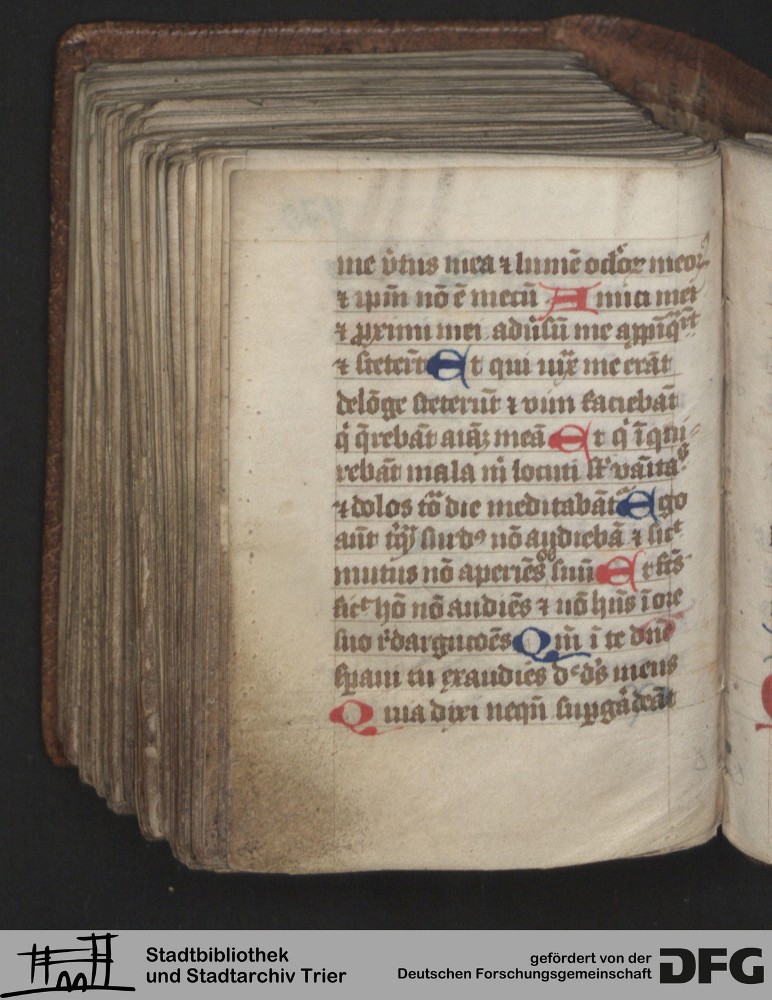 me v̄tus mea ⁊ lumē oc̄loꝝ meoꝝ
⁊ ip̄m nō ē mecū Amici mei
⁊ ꝓximi mei adūsū me app̄īq̄rt̄
⁊ steter̄t Et qui iux̄ me erāt
delōge steterūt ⁊ vim faciebāt
q̇ q̄rebāt aiāȝ meā Et q̇ īqui
rebāt mala m̄ locuti st̄ vāita
⁊ dolos tō die meditabāt Ego
aūt tq̄ȝ surdꝰ nō audiebā ⁊ sic̄
mutus nō aperiēs os suū Et fc̄s
sic̄ hō nō audiēs ⁊ nō hn̄s ī ore
suo r̄dargucōēs Qm̄ ī te dn̄e
sp̄aui tu exaudies d̄ ds̄ meus
Quia dixi neqn̄ suꝑgādeāt
Stadtbibliothek
und Stadtarchiv Trier
gefördert von der
Deutschen Forschungsgemeinschaft
DFG